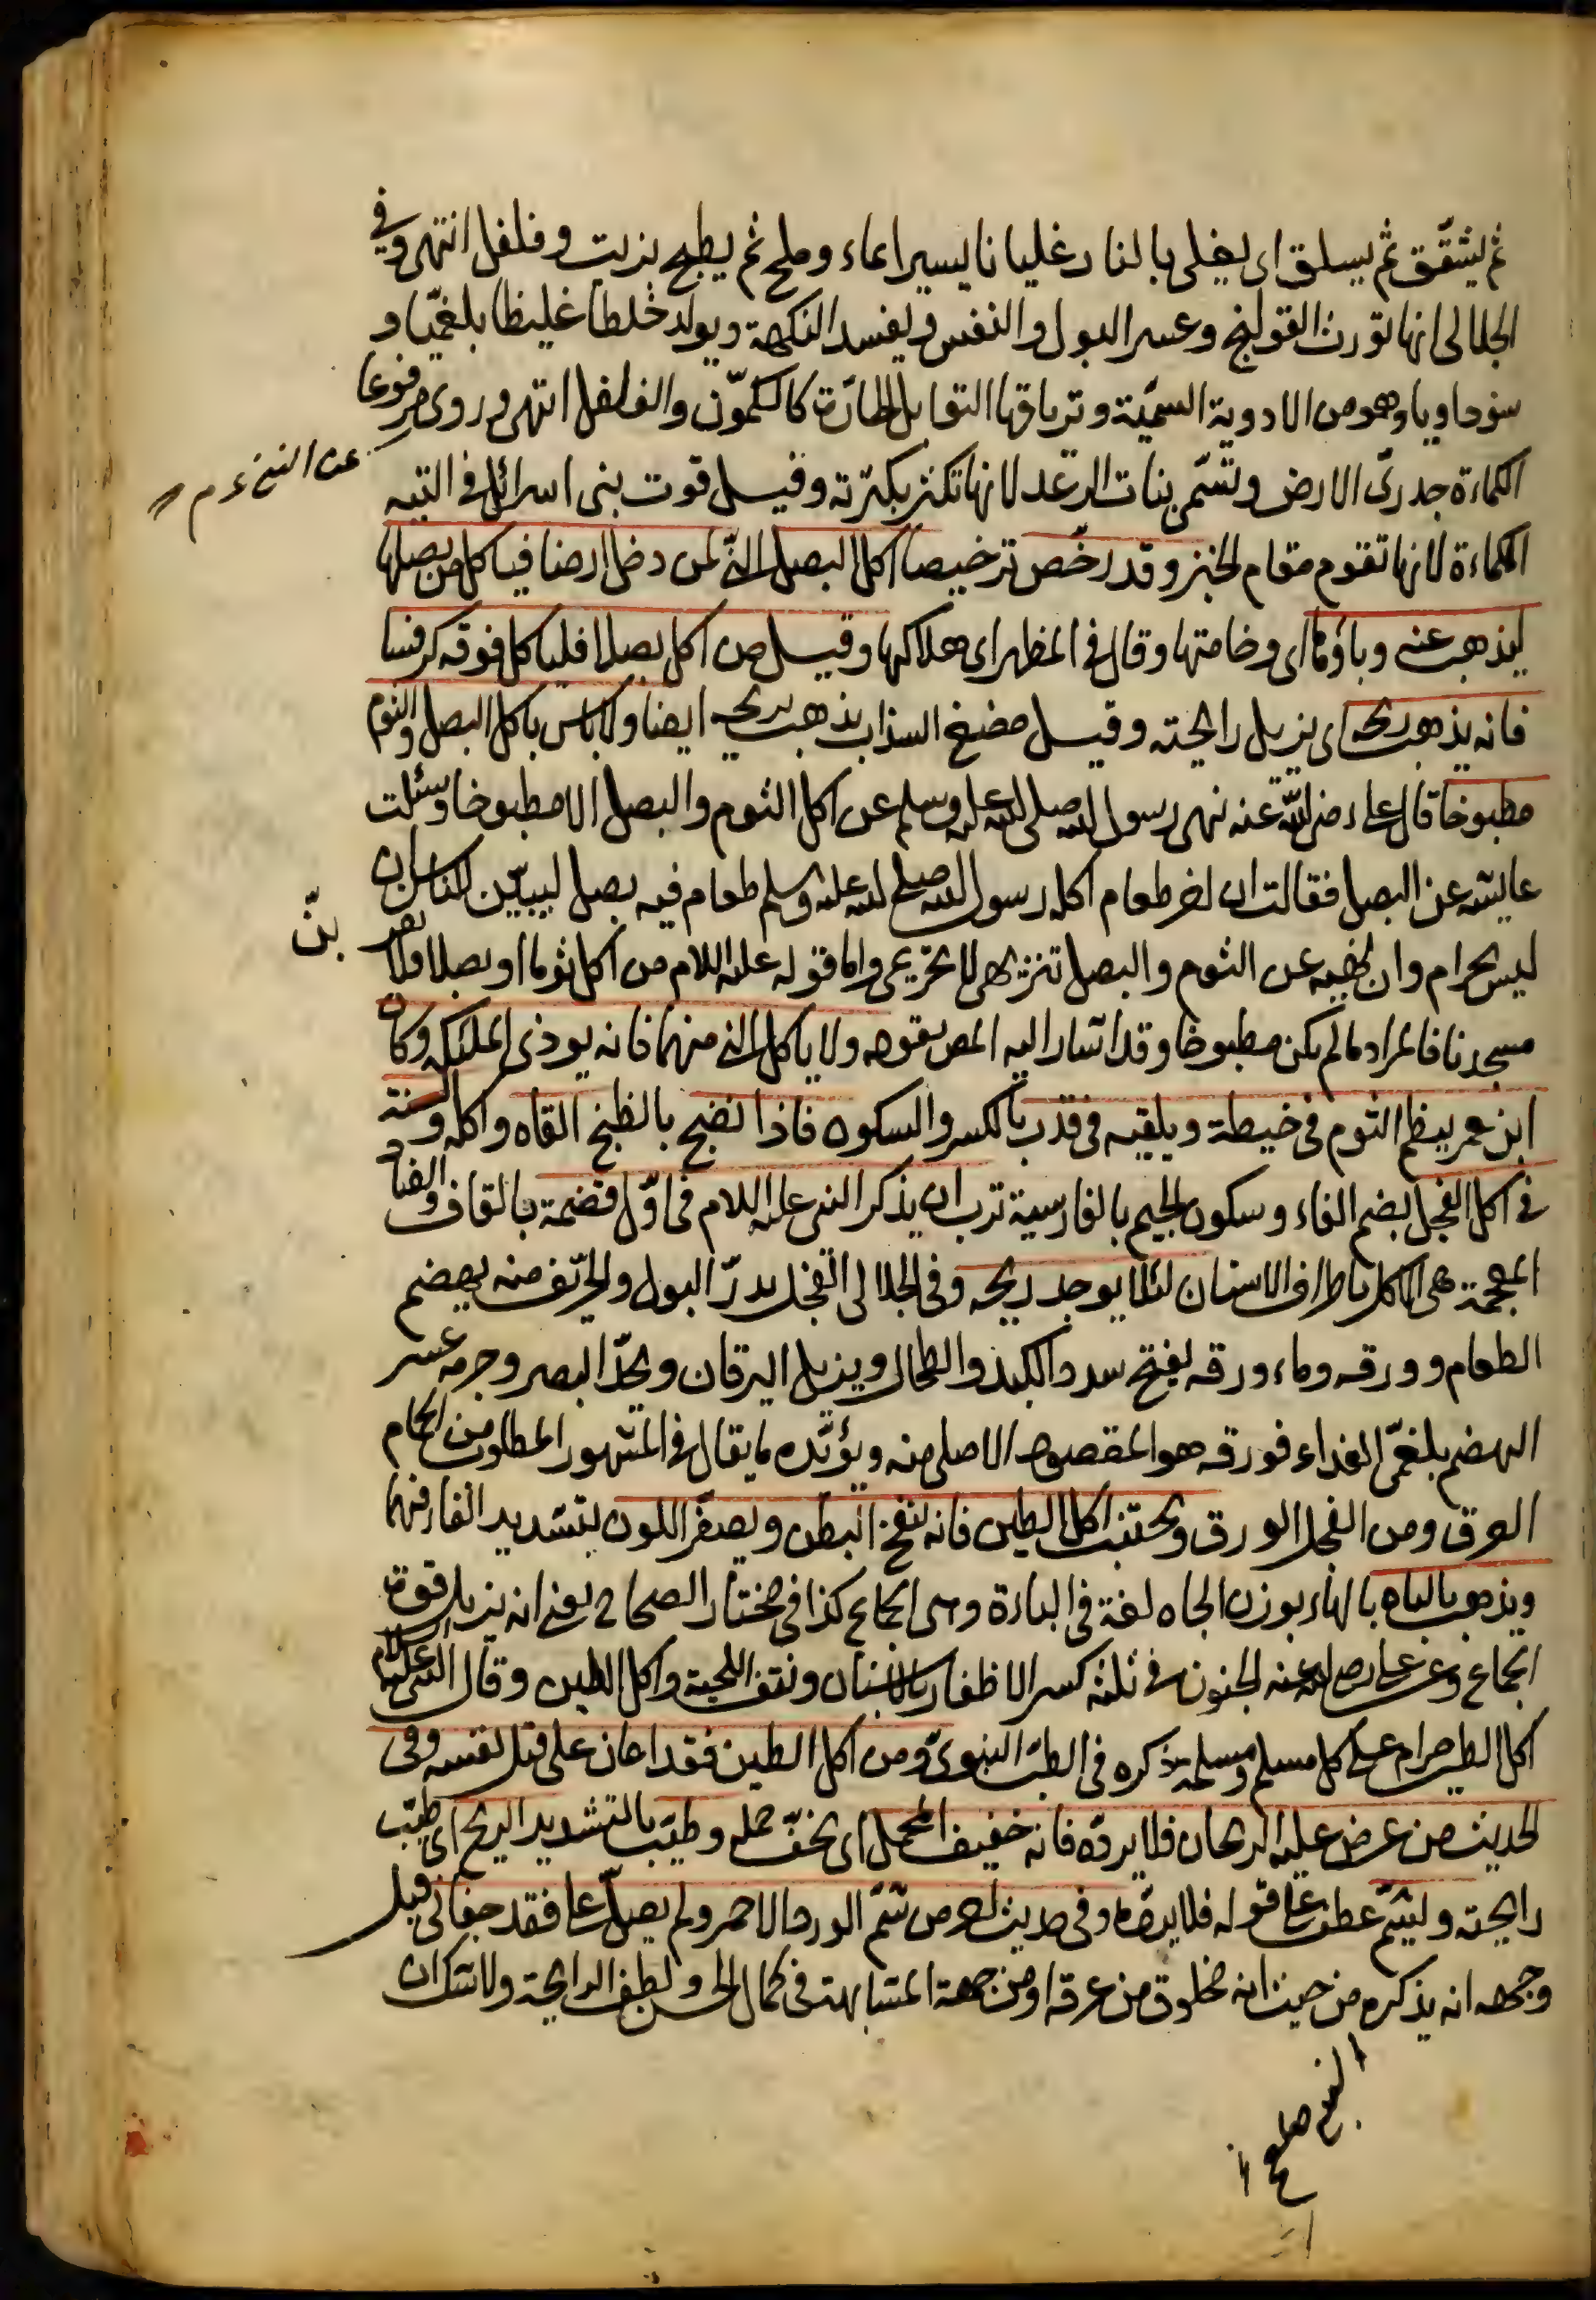 ثم يشقّق ثم يسلق اى يغلى بالنار غليانا يسيرا بماء وملح ثم يطبخ بزيت وفلفل انتهى وفى
الجلالى انها تورث القولنج وعسر البول والنفس ويفسد النكهة ويولد خلطا غليظا بلغميا و
سوداويا وهو من الادوية السميّة وترياقها التوابل الحارّة كالكمّون والفلفل انتهى وروى مرفوعا
عن النبى ع م
الكماءة جدرىّ الارض وتسمّى بنات الرعد لانها تكثر بكثرته وقيل قوت بنى اسرائل فى التيه
الكماءة لانها تقوم مقام الخبز وقد رخّص ترخيصا اكل البصل النّى لمن دخل ارضا فيأكل من بصلها
ليذهب عنه وباؤها اى وخامتها وقال فى المظهر اى هلاكها وقيل من اكل بصلا فليأكل فوقه كرفسا
فانه يذهب ريحه اى يزيل رايحته وقيل مضغ السذاب يذهب ريحه ايضا ولا باس باكل البصل والثوم
مطبوخا قال على رضى الله عنه نهى رسول الله صلى الله عليه وسلم عن اكل الثوم والبصل الا مطبوخا وسئلت
عايشه عن البصل فقالت ان اخر طعام اكله رسول الله صلى الله عليه وسلم طعام فيه بصل ليبيّن للناس ان
ليس بحرام وان نهيه عن الثوم والبصل تنزيهى لا تحريمى واما قوله عليه اللام من اكل ثوما او بصلا فلا يقر بنّ
مسجدنا فالمراد ما لم يكن مطبوخا وقد اشار اليه المص بقوله ولا يأكل النى منهما فانه يوذى الملئكه وكان
ابن عمر ينظم الثوم فى خيطة ويلقيه فى قدر بالكسر والسكون فاذا نضج بالطبخ القاه واكله والسنة
فى اكل الفجل بضم الفاء وسكون الجيم بالفارسية ترب ان يذكر النبى عليه اللام فى اوّل قضمة بالقاف والضاد
المعجمة هى الاكل باطراف الاسنان لئلا يوجد ريحه وفى الجلالى الفجل يدرّ البول والحرّيف منه يهضم
الطعام وورقه وماء ورقه يفتح سدد الكبد والطحال ويزيل اليرقان ويحدّ البصر وجرمه عسر
الهضم بلغمىّ الغذاء فورقه هو المقصود الاصلى منه ويؤيّده ما يقال فى المشهور المطلوب من الحمام
العرق ومن الفجل الورق ويجتنب اكل الطين فانه ينفخ البطن ويصفّر اللون بتشديد الفاء فيهما
ويذهب بالباه بالهاء بوزن الجاه لغة فى الباءة وهى الجماع كذا فى مختار الصحاح يعنى انه يزيل قوت
الجماع وعن على رضى الله عنه الجنون فى ثلثه كسر الاظفار بالاسنان ونتف اللحية واكل الطين وقال النبى عليه اللام
اكل الطين حرام على كل مسلم ومسلمة ذكره فى الطب النبوىّ ومن اكل الطين فقد اعان على قتل نفسه وفى
الحديث من عرض عليه الريحان فلا يردّه فانه خفيف المحمل اى يخفّ حمله وطيّب بالتشديد الريح اى طيّب
رايحته وليشمّ عطف على قوله فلا يردّه وفى حديث اخر من شمّ الورد الاحمر ولم يصلّ على فقد جفانى قيل
وجهه انه يذكره من حيث انه مخلوق من عرقه او من جهة المشابهة فى كمال الحسن ولطف الرايحة ولا شك ان
النبى صلعم